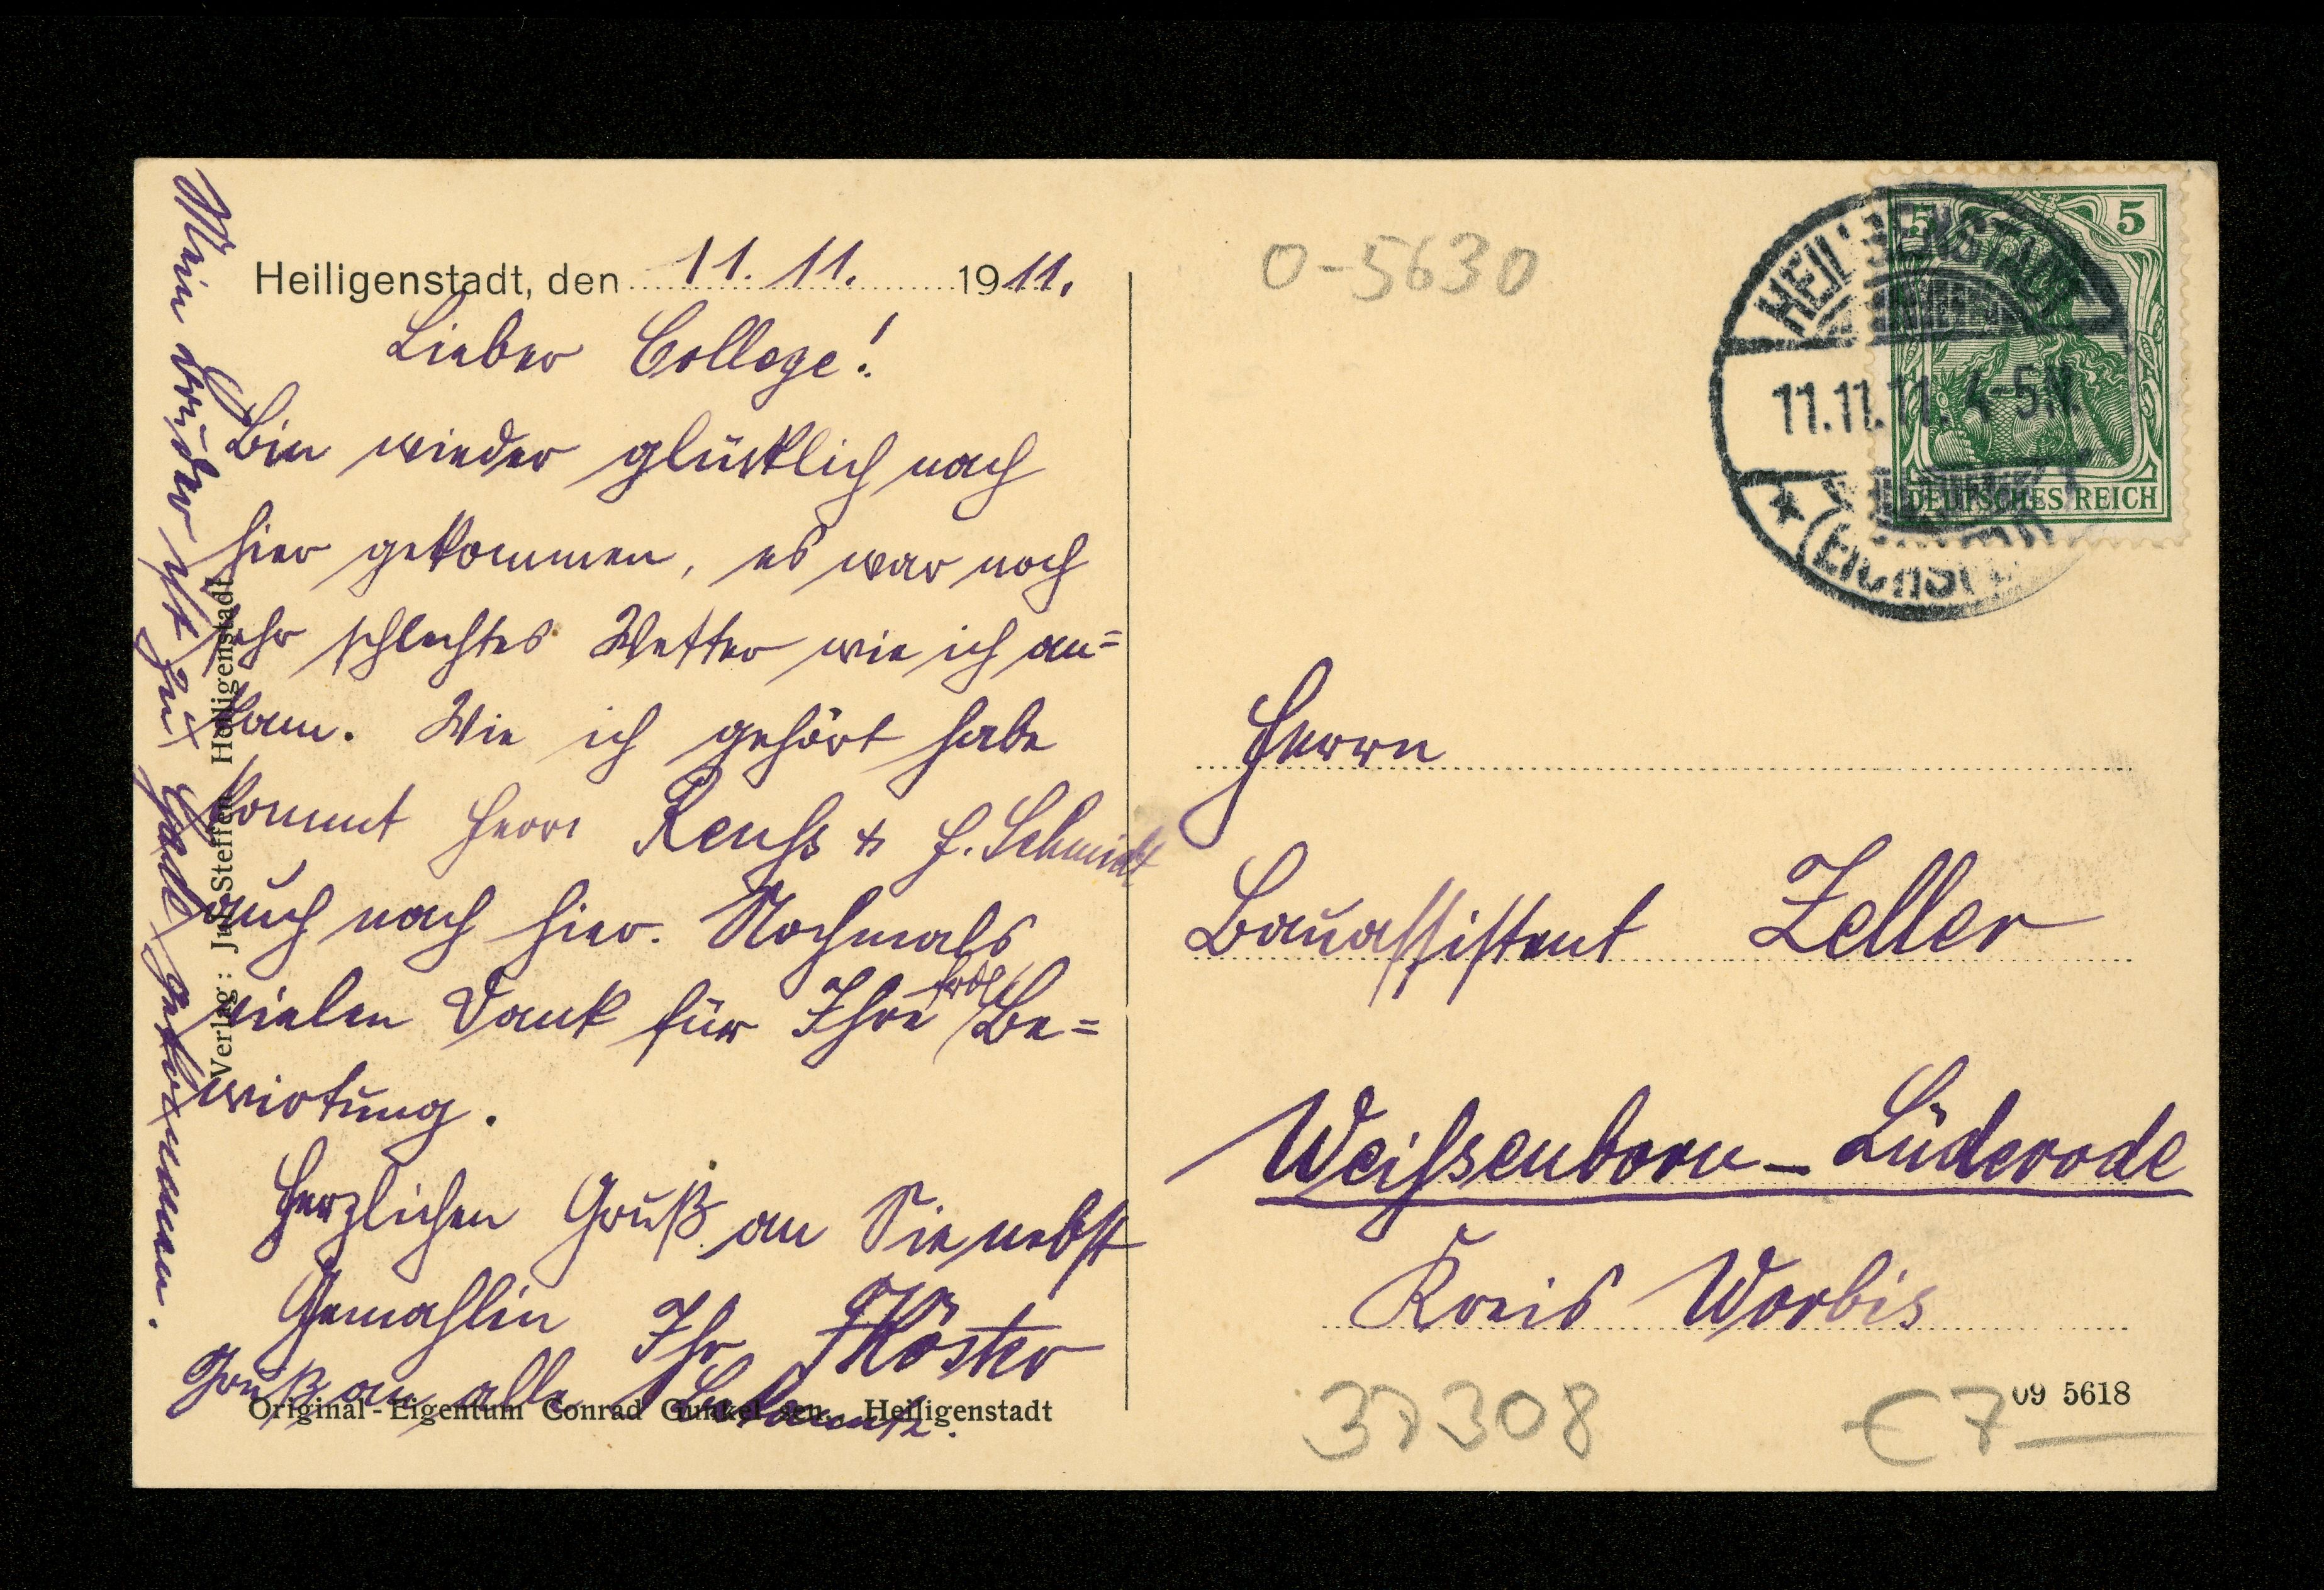 Heiligenstadt, den 11. 11. 1911.
Lieber College!
Bin wieder glücklich nach
hier gekommen, es war noch
sehr schlechtes Wetter wie ich an=
kam. Wie ich gehört habe
kommt Herr Reuß & H. Schmidt
auch nach hier. Nochmals
vielen Dank für Ihre frdl. Be=
wirtung.
Herzlichen Gruß an Sie nebst
Gemahlin Ihr Köster
Gruß an alle Bekannte.
Mein Bruder ist gut
Verlag: Jul. Steffen Heiligenstadt
Original-Eigentum Conrad Gunkel sen., Heiligenstadt
O-5630
5 5
DEUTSCHES REICH
HEILIGENSTADT
11.11.11. 4-5N
* (EICHSF
Herrn
Bauassistent Zeller
Weißenborn-Lüderode
Kreis Worbis
09 5618
37308
€7